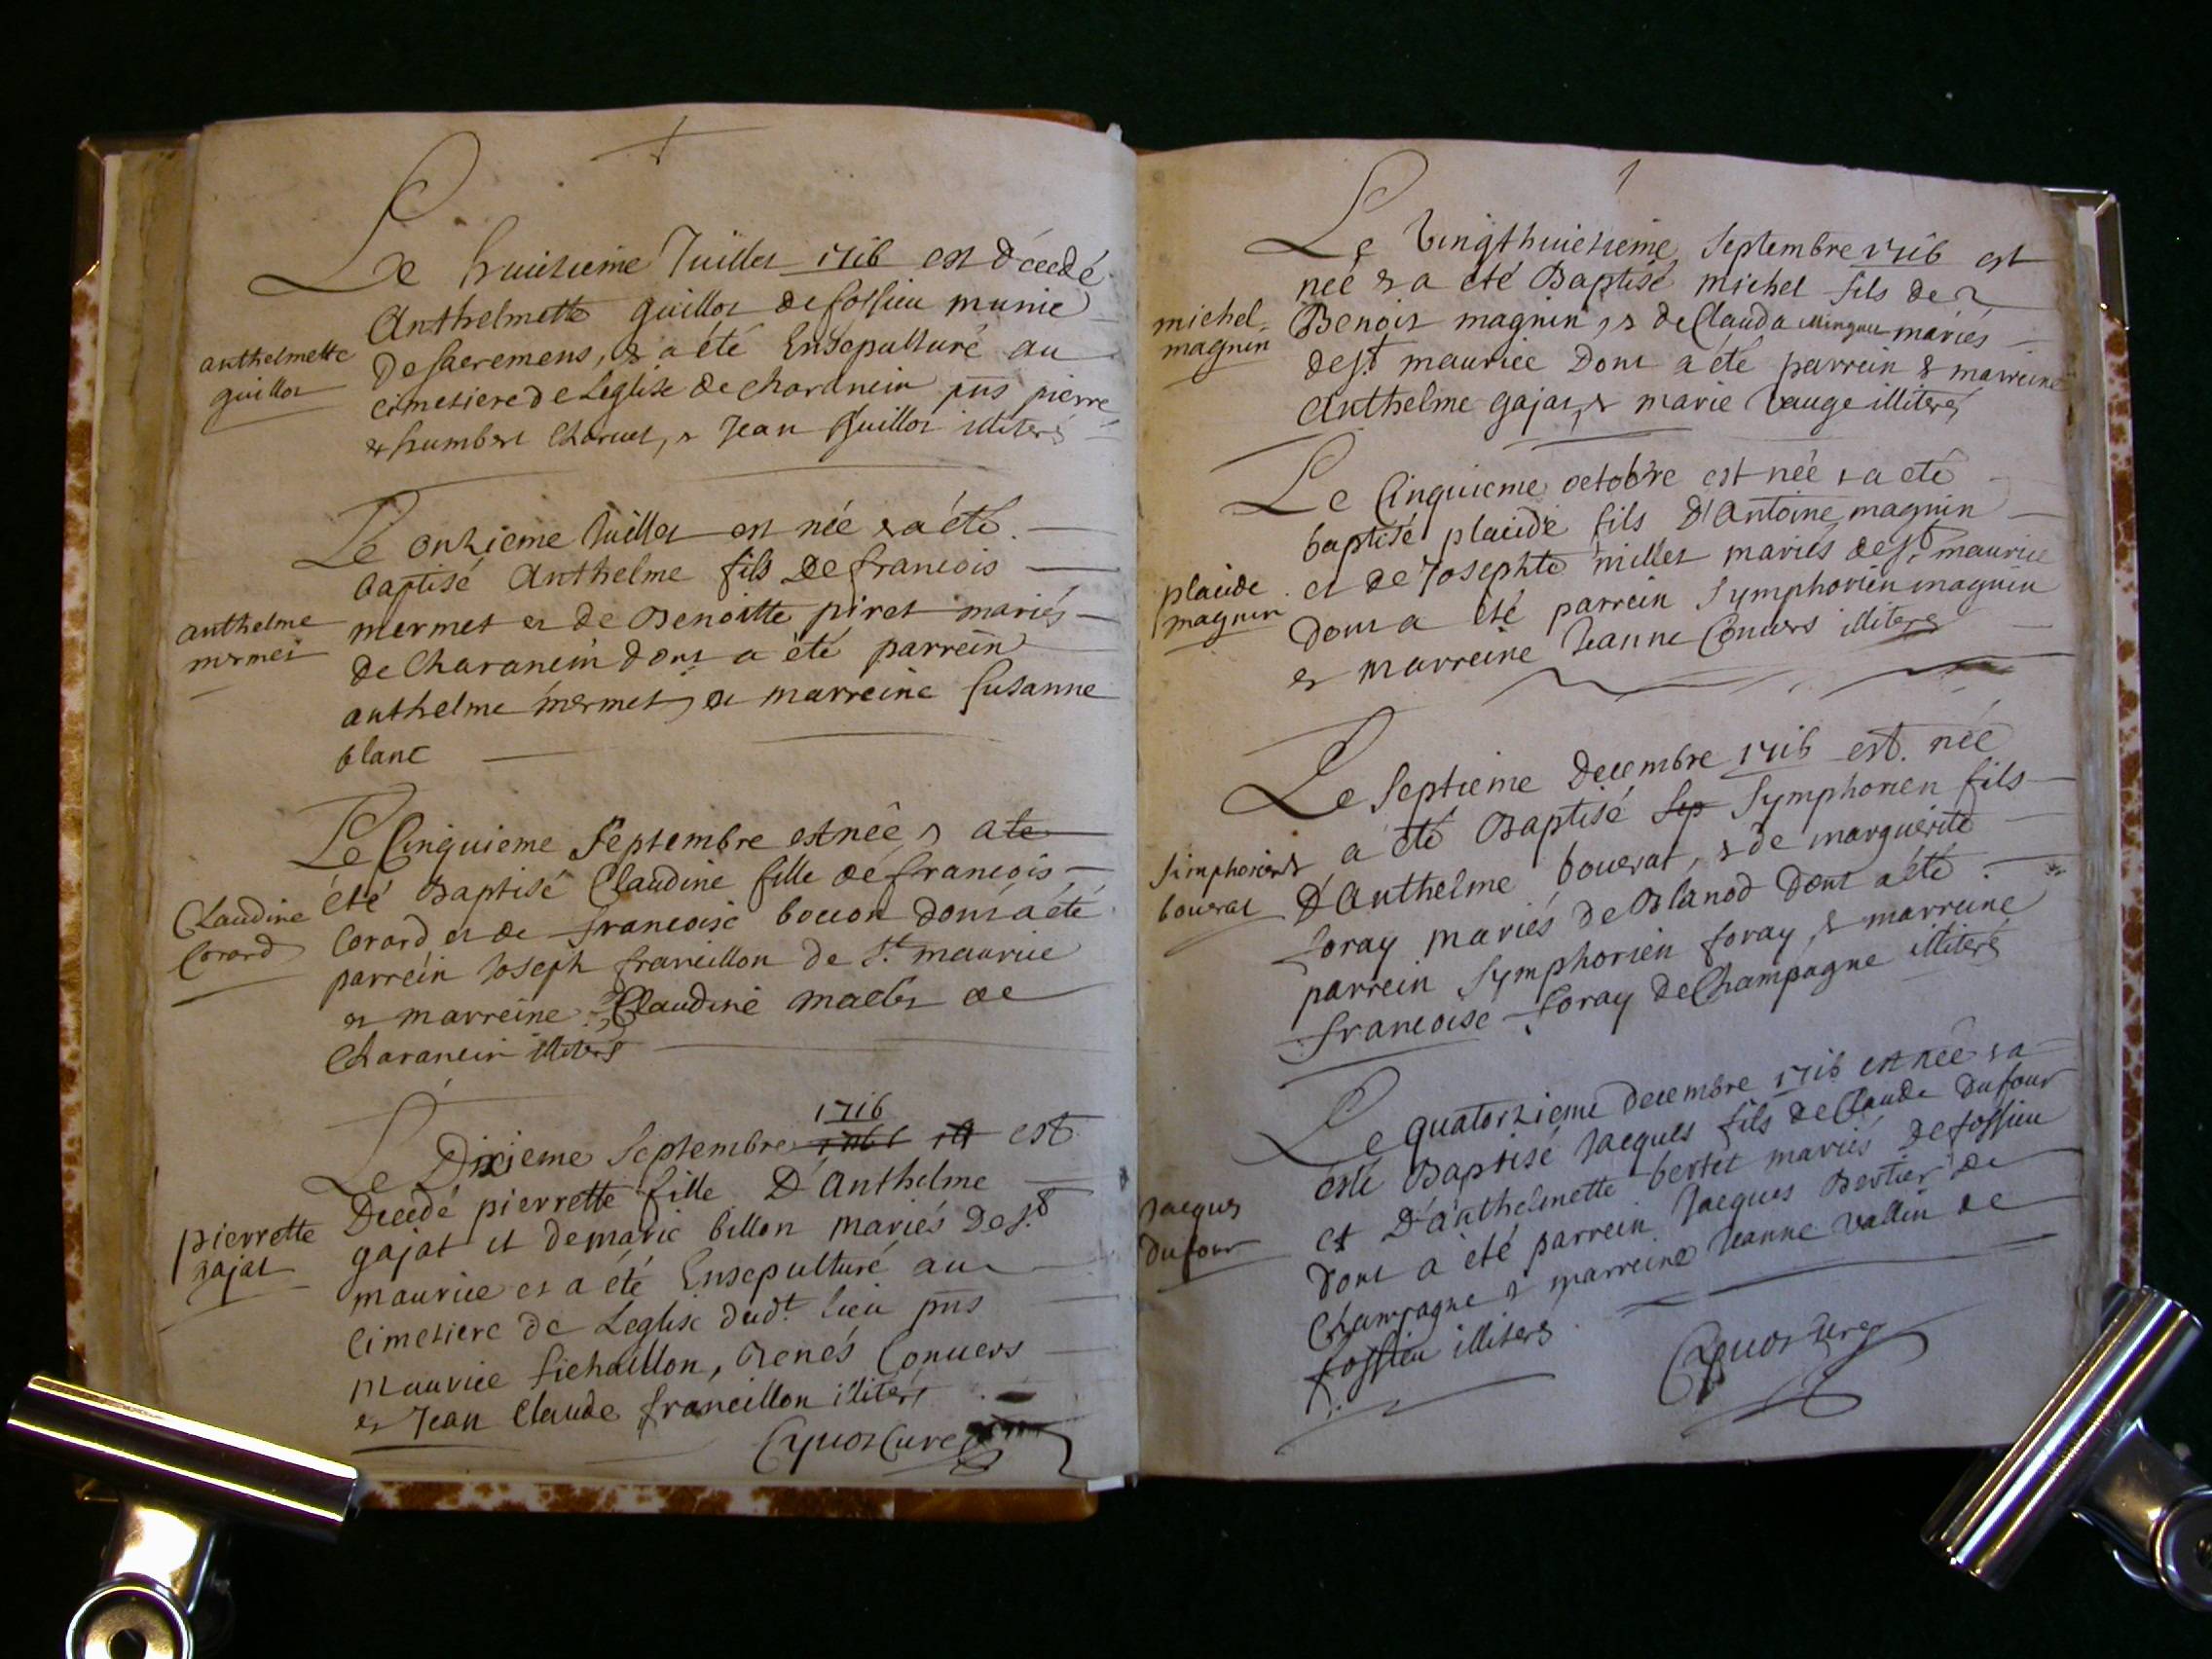 Le huitieme Juillet 1716 est décedé
Anthelmette guillot de fossieu munie
De sacremens, & a été Ensepulturé au
anthelmette
guillot
cimetiere de Leglise de charancin pñs pierre
& humbert Charuet, & Jean Guillot illiterés
Le onzieme Juillet est née & a été
baptisé Anthelme fils De francois
mermet et de Benoitte piret mariés
anthelme
mermet
de Charancin dont a été parrein
anthelme mermet, et marreine Susanne
blanc
Le Cinquieme Septembre est née, & a te
été Baptisé Claudine fille de francois
Claudine
Corard
Corard et de francoise bocion dont a été
parrein Joseph francillon de St maurice
et marreine Claudine maclet de
Charancin illiterés
1716
Le Dixieme Septembre est
Decedé pierrette fille D'Anthelme
pierrette
gajat
gajat et de marie billon mariés De St
maurice et a été Ensepulturé au
cimetiere de Leglise dudt. lieu pñs
maurice fichaillon, Renés Conuers
et Jean Claude francillon illiterés
Cyuot Curé
Le Vingthuietieme Septembre 1716 est
née & a été Baptisé michel fils de
michel
magnin
Benoit magnin, & de Clauda mariés
de St maurice Dont a été parrein & marreine
Anthelme gajat, & marie Vauge illiterés
Le Cinquieme octobre est née & a été
baptisé placide fils D'Antoine magnin
placide
magnin
et de Josephte millet mariés de St. maurice
dont a été parrein Symphorien magnin
et marreine Jeanne Conuers illiterés
Le Septieme Decembre 1716 est née
a été Baptisé Sep Symphorien fils
Simphorien
bouerat
D'Anthelme bouerat, & de marguerite
foray mariés de Blanod Dont a été
parrein Symphorien foray, & marreine
francoise foray de Champagne illiterés
Le quatorzieme Decembre 1716 est née & a
esté Baptisé Jacques fils de Claude Dufour
Jacques
Dufour
et D'anthelmette bertet mariés De fossieu
Dont a été parrein Jacques Bertier de
Champagne & marreine Jeanne Vallin de
fossieu illiterés
Cyuot Curé